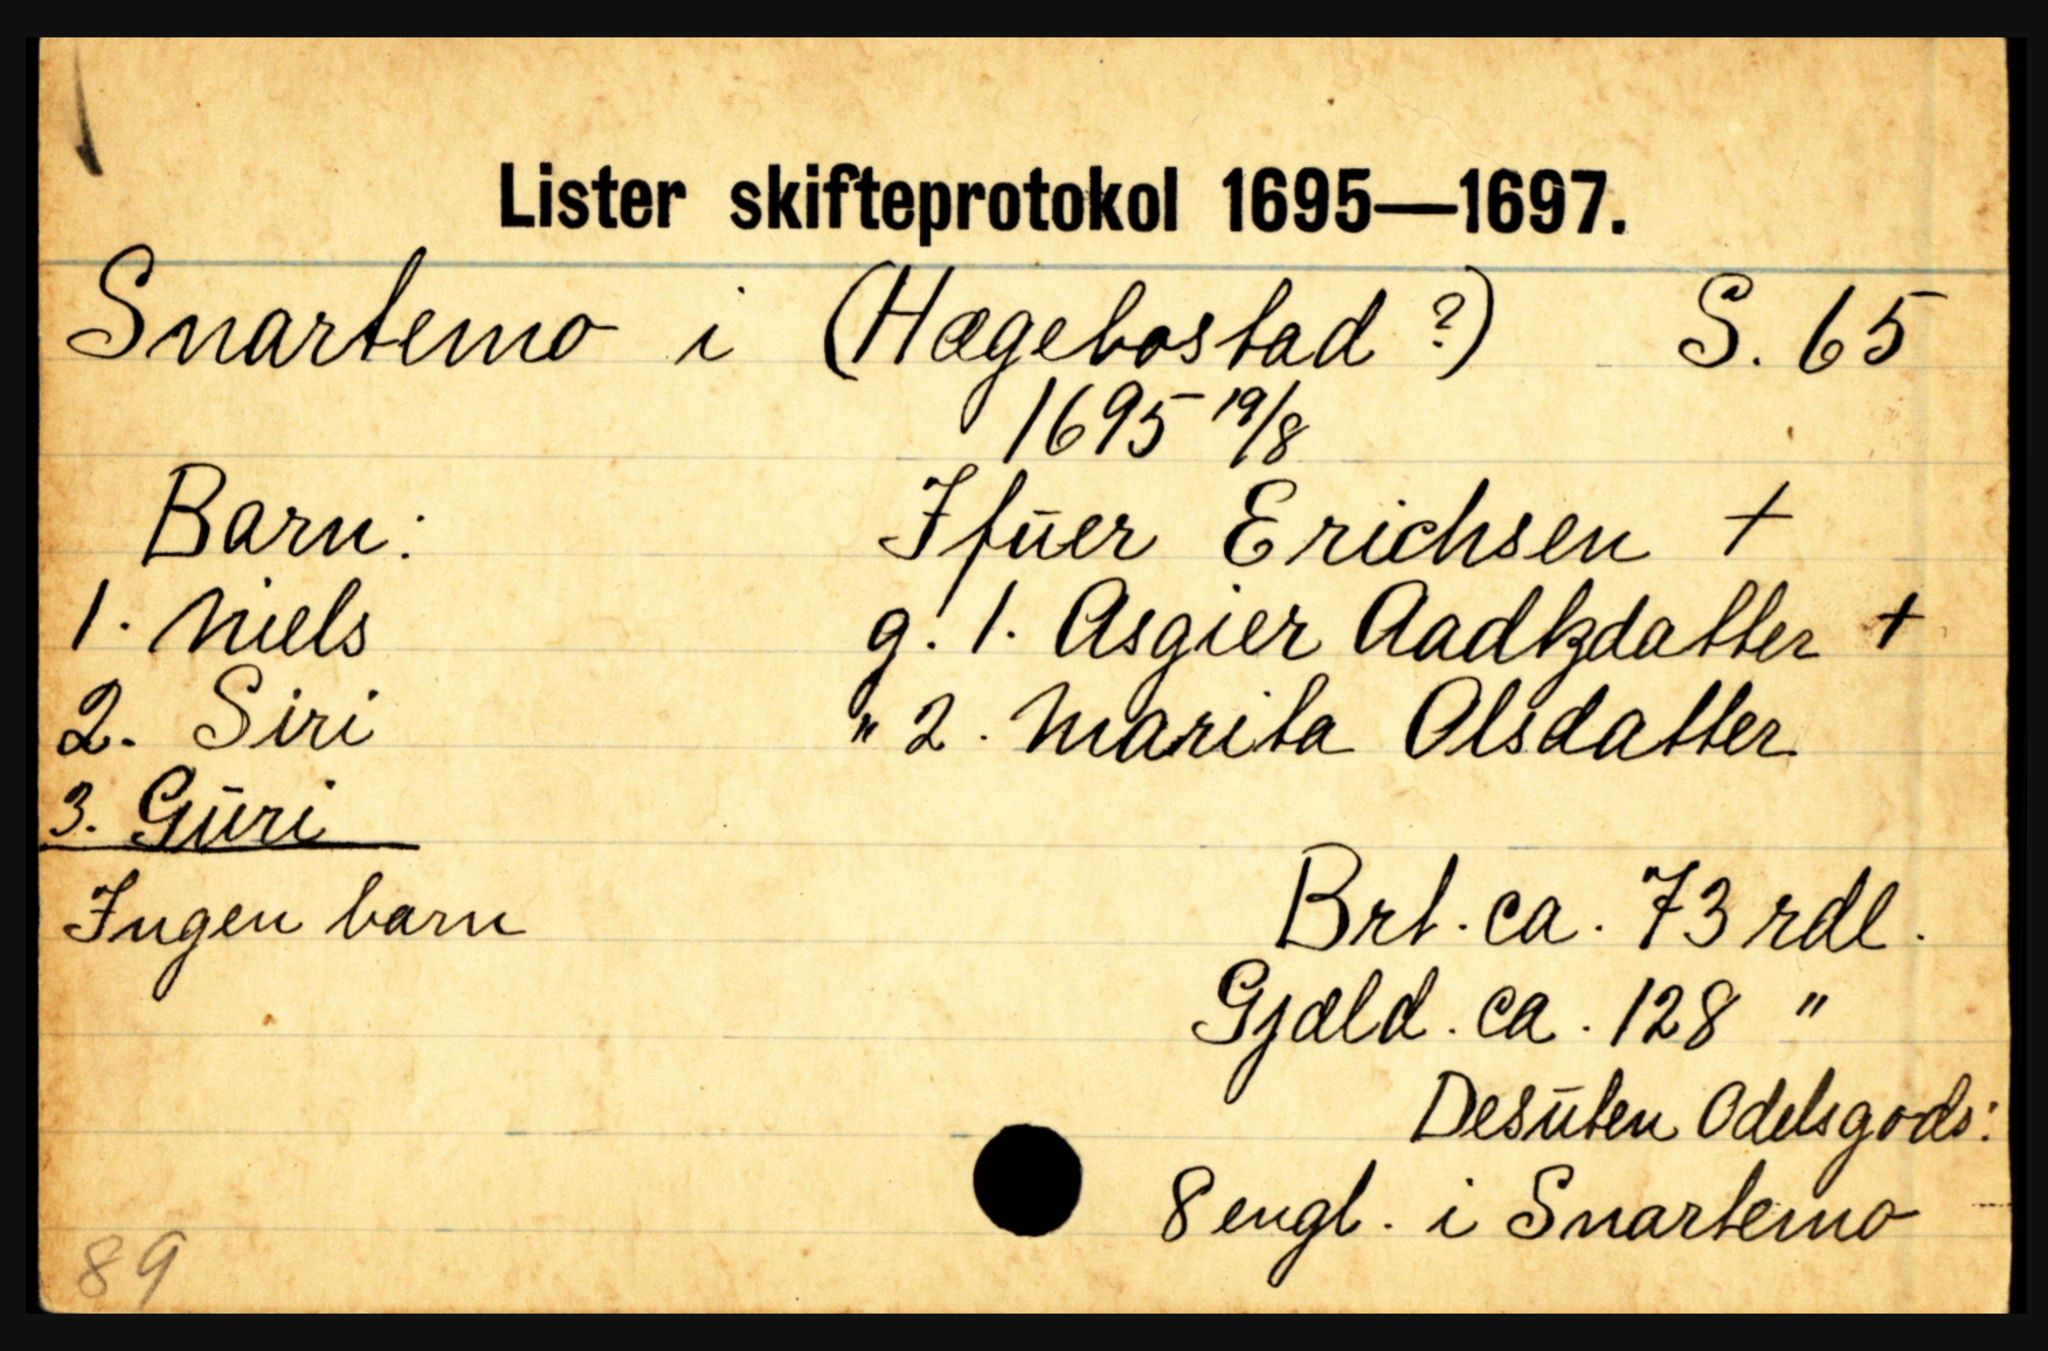 Lister skifteprotokol 1695—1697.
Snartemo i (Hægebostad ?) S. 65
1695 19/8
Barn: Ifŭer Erichsen +
1. Niels g. 1. Asgier Aadtzdatter +
2. Siri " 2. Marita Olsdatter
3. Gŭri
Ingen barn Brt. ca. 73 rdl.
Gjæld. ca. 128 "
Desŭten Odelsgods:
8 engl. i Snartemo
89